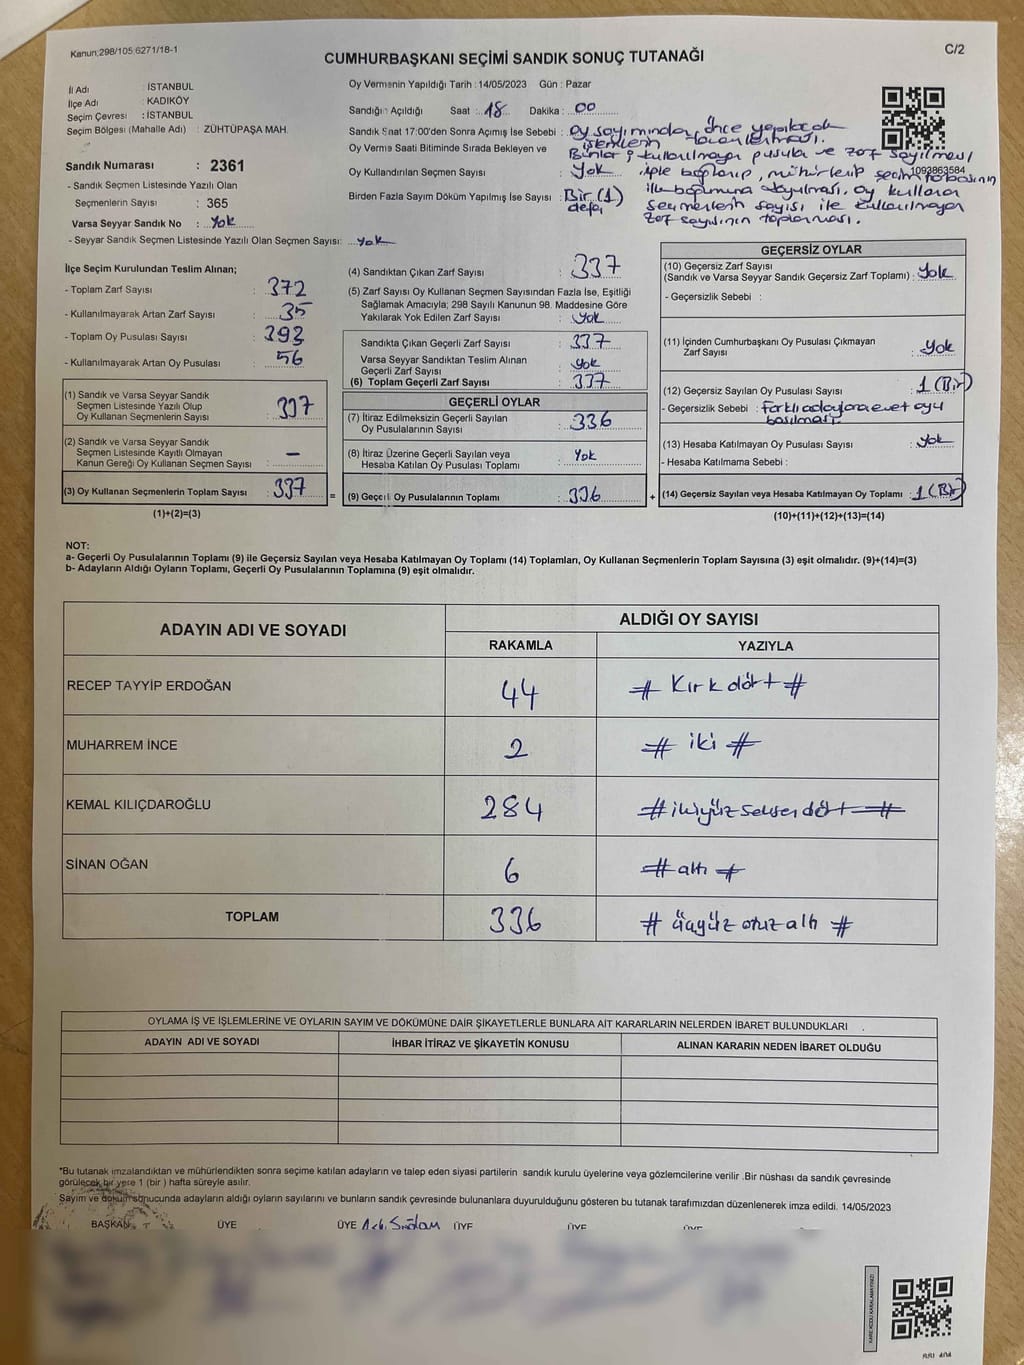 Kanun;298/105,6271/18-1
C/2
CUMHURBAŞKANI SEÇİMİ SANDIK SONUÇ TUTANAĞI
İl Adı : İSTANBUL
İlçe Adı : KADIKÖY
Seçim Çevresi : İSTANBUL
Seçim Bölgesi (Mahalle Adı) : ZÜHTÜPAŞA MAH.
Sandık Numarası : 2361
- Sandık Seçmen Listesinde Yazılı Olan
Seçmenlerin Sayısı : 365
Varsa Seyyar Sandık No : Yok
- Seyyar Sandık Seçmen Listesinde Yazılı Olan Seçmen Sayısı: Yok
Oy Vermenin Yapıldığı Tarih : 14/05/2023 Gün : Pazar
Sandığın Açıldığı Saat : 18 Dakika : 00
Sandık Saat 17:00'den Sonra Açılmış İse Sebebi : oy sayımından önce yapılacak
işlemlerin tamamlanması.
Oy Verme Saati Bitiminde Sırada Bekleyen ve
Bunlar; kullanılmayan pusula ve zarf sayılması
Oy Kullandırılan Seçmen Sayısı : Yok
iple bağlanıp, mühürlenip seçim torbasının
1093863584
Birden Fazla Sayım Döküm Yapılmış İse Sayısı : Bir (1) defa
ilk boğumuna koyulması, oy kullanan
seçmenlerin sayısı ile kullanılmayan
zarf sayısının toplanması.
İlçe Seçim Kurulundan Teslim Alınan;
- Toplam Zarf Sayısı : 372
- Kullanılmayarak Artan Zarf Sayısı : 35
- Toplam Oy Pusulası Sayısı : 393
- Kullanılmayarak Artan Oy Pusulası : 56
(1) Sandık ve Varsa Seyyar Sandık
Seçmen Listesinde Yazılı Olup
Oy Kullanan Seçmenlerin Sayısı : 337
(2) Sandık ve Varsa Seyyar Sandık
Seçmen Listesinde Kayıtlı Olmayan
Kanun Gereği Oy Kullanan Seçmen Sayısı : –
(3) Oy Kullanan Seçmenlerin Toplam Sayısı : 337
(1)+(2)=(3)
=
(4) Sandıktan Çıkan Zarf Sayısı : 337
(5) Zarf Sayısı Oy Kullanan Seçmen Sayısından Fazla İse, Eşitliği
Sağlamak Amacıyla; 298 Sayılı Kanunun 98. Maddesine Göre
Yakılarak Yok Edilen Zarf Sayısı : Yok
Sandıkta Çıkan Geçerli Zarf Sayısı : 337
Varsa Seyyar Sandıktan Teslim Alınan
Geçerli Zarf Sayısı : Yok
(6) Toplam Geçerli Zarf Sayısı : 337
GEÇERLİ OYLAR
(7) İtiraz Edilmeksizin Geçerli Sayılan
Oy Pusulalarının Sayısı : 336
(8) İtiraz Üzerine Geçerli Sayılan veya
Hesaba Katılan Oy Pusulası Toplamı : Yok
(9) Geçerli Oy Pusulalarının Toplamı : 336
+
GEÇERSİZ OYLAR
(10) Geçersiz Zarf Sayısı
(Sandık ve Varsa Seyyar Sandık Geçersiz Zarf Toplamı) : Yok
- Geçersizlik Sebebi :
(11) İçinden Cumhurbaşkanı Oy Pusulası Çıkmayan
Zarf Sayısı : Yok
(12) Geçersiz Sayılan Oy Pusulası Sayısı : 1 (Bir)
- Geçersizlik Sebebi : Farklı adaylara evet oyu
basılması.
(13) Hesaba Katılmayan Oy Pusulası Sayısı : Yok
- Hesaba Katılmama Sebebi :
(14) Geçersiz Sayılan veya Hesaba Katılmayan Oy Toplamı : 1 (Bir)
(10)+(11)+(12)+(13)=(14)
NOT:
a- Geçerli Oy Pusulalarının Toplamı (9) ile Geçersiz Sayılan veya Hesaba Katılmayan Oy Toplamı (14) Toplamları, Oy Kullanan Seçmenlerin Toplam Sayısına (3) eşit olmalıdır. (9)+(14)=(3)
b- Adayların Aldığı Oyların Toplamı, Geçerli Oy Pusulalarının Toplamına (9) eşit olmalıdır.
ADAYIN ADI VE SOYADI
ALDIĞI OY SAYISI
RAKAMLA YAZIYLA
RECEP TAYYİP ERDOĞAN 44 # Kırkdört #
MUHARREM İNCE 2 # iki #
KEMAL KILIÇDAROĞLU 284 # ikiyüzseksendört #
SİNAN OĞAN 6 # altı #
TOPLAM 336 # üçyüz otuz altı #
OYLAMA İŞ VE İŞLEMLERİNE VE OYLARIN SAYIM VE DÖKÜMÜNE DAİR ŞİKAYETLERLE BUNLARA AİT KARARLARIN NELERDEN İBARET BULUNDUKLARI
ADAYIN ADI VE SOYADI İHBAR İTİRAZ VE ŞİKAYETİN KONUSU ALINAN KARARIN NEDEN İBARET OLDUĞU
*Bu tutanak imzalandıktan ve mühürlendikten sonra seçime katılan adayların ve talep eden siyasi partilerin sandık kurulu üyelerine veya gözlemcilerine verilir .Bir nüshası da sandık çevresinde
görülecek bir yere 1 (bir ) hafta süreyle asılır.
Sayım ve döküm sonucunda adayların aldığı oyların sayılarını ve bunların sandık çevresinde bulunanlara duyurulduğunu gösteren bu tutanak tarafımızdan düzenlenerek imza edildi. 14/05/2023
BAŞKAN ÜYE ÜYE ÜYE ÜYE ÜYE